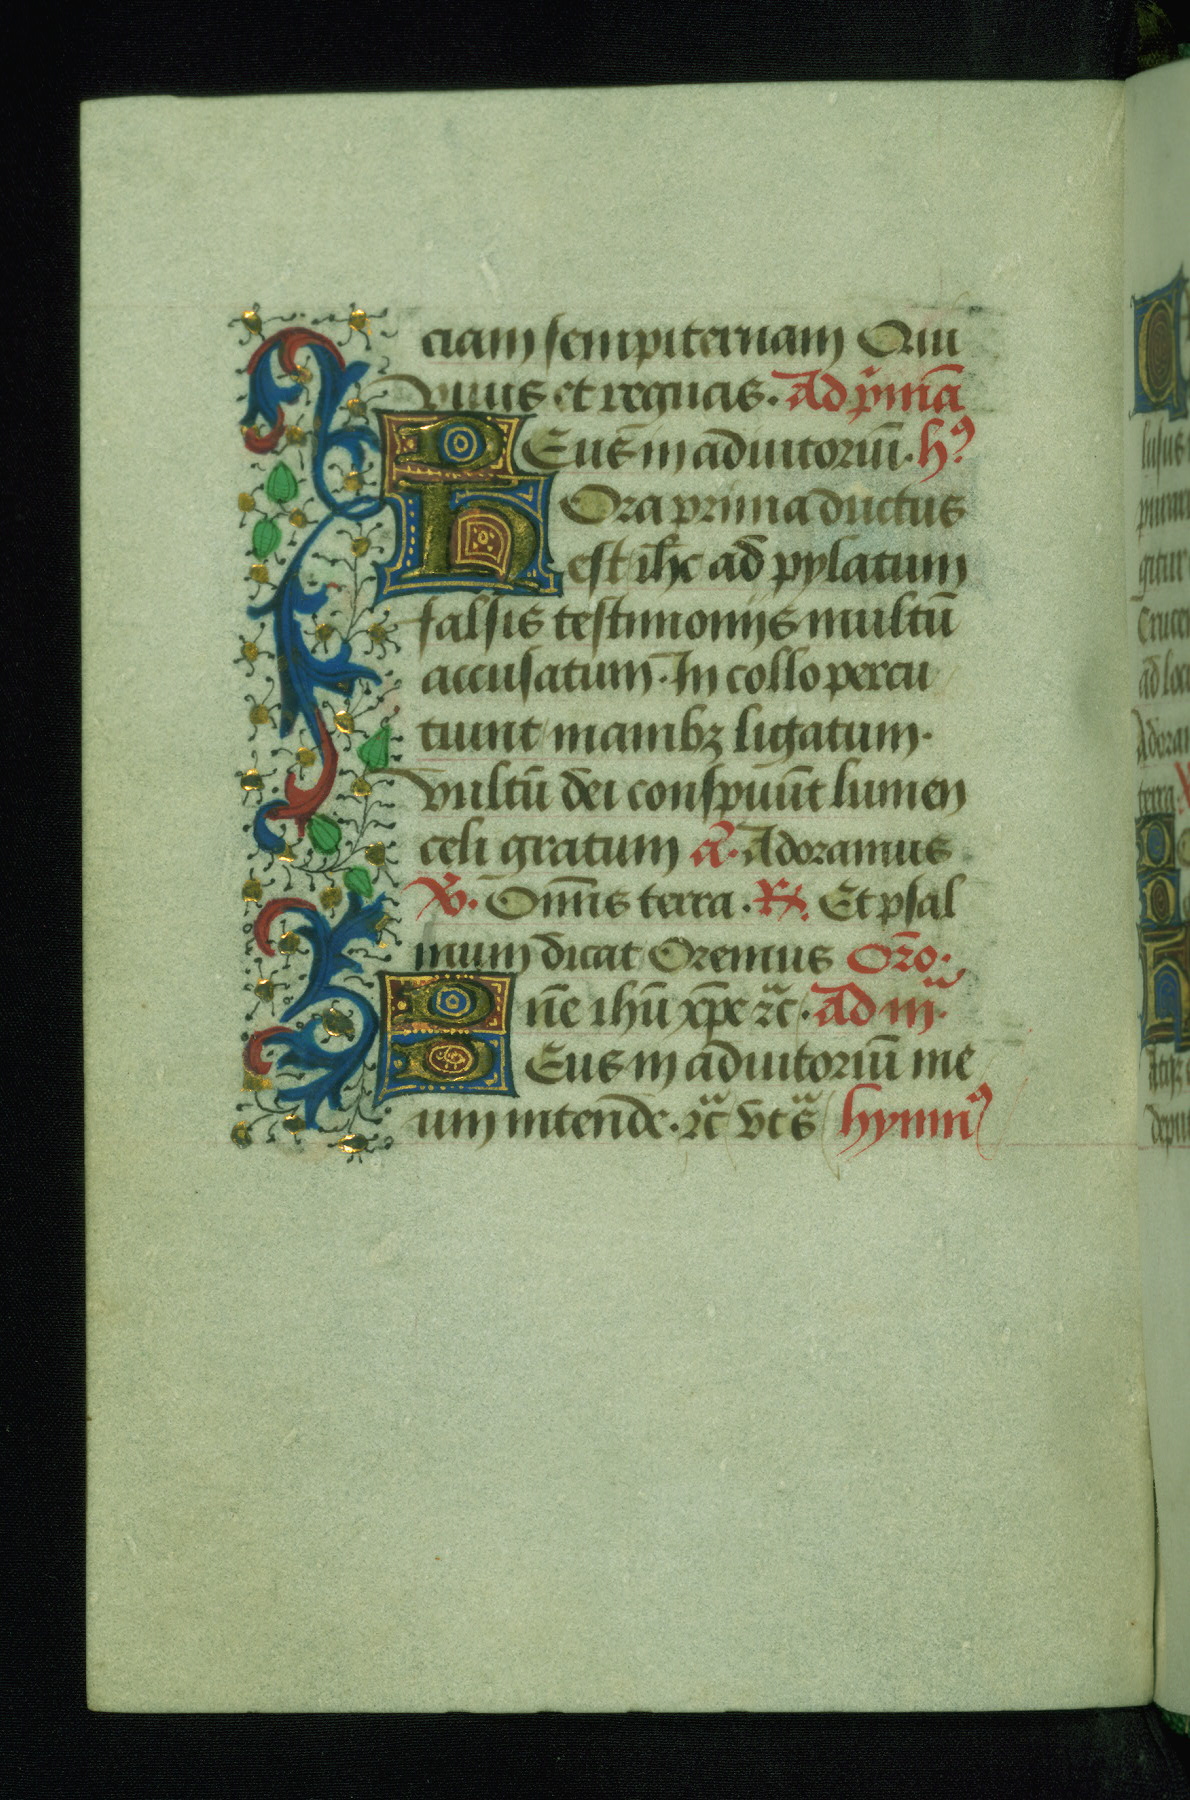 ciam sempiternam Qui
viuis et regnas. Ad p̄mā
DEus in adiutoriū. hꝰ
HOra prima ductus
est ih̄c ad pylatum
falsis testimoniis multū
accusatum. In collo percu
tiunt manibꝫ ligatum.
vultū dei conspuūt lumen
celi gratum a. Adoramus
V. Om̄is terra. R. Et psal
mum dicat Oremus Oro.
Dn̄e ihū xp̄e ⁊c. Ad iii.
DEus in adiutoriū me
um intende. ⁊c vts hymnꝰ